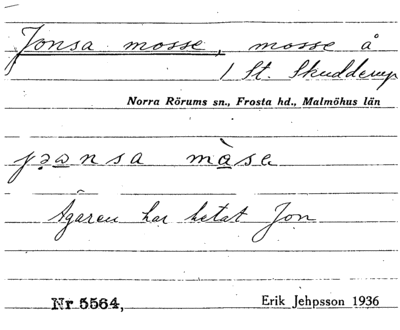 Jonsa mosse, mosse å
1 St. Skudderup
Norra Rörums sn., Frosta hd., Malmöhus län
månsa
Ägaren har hetat Jon
Nr 5564, Erik Jehpsson 1936